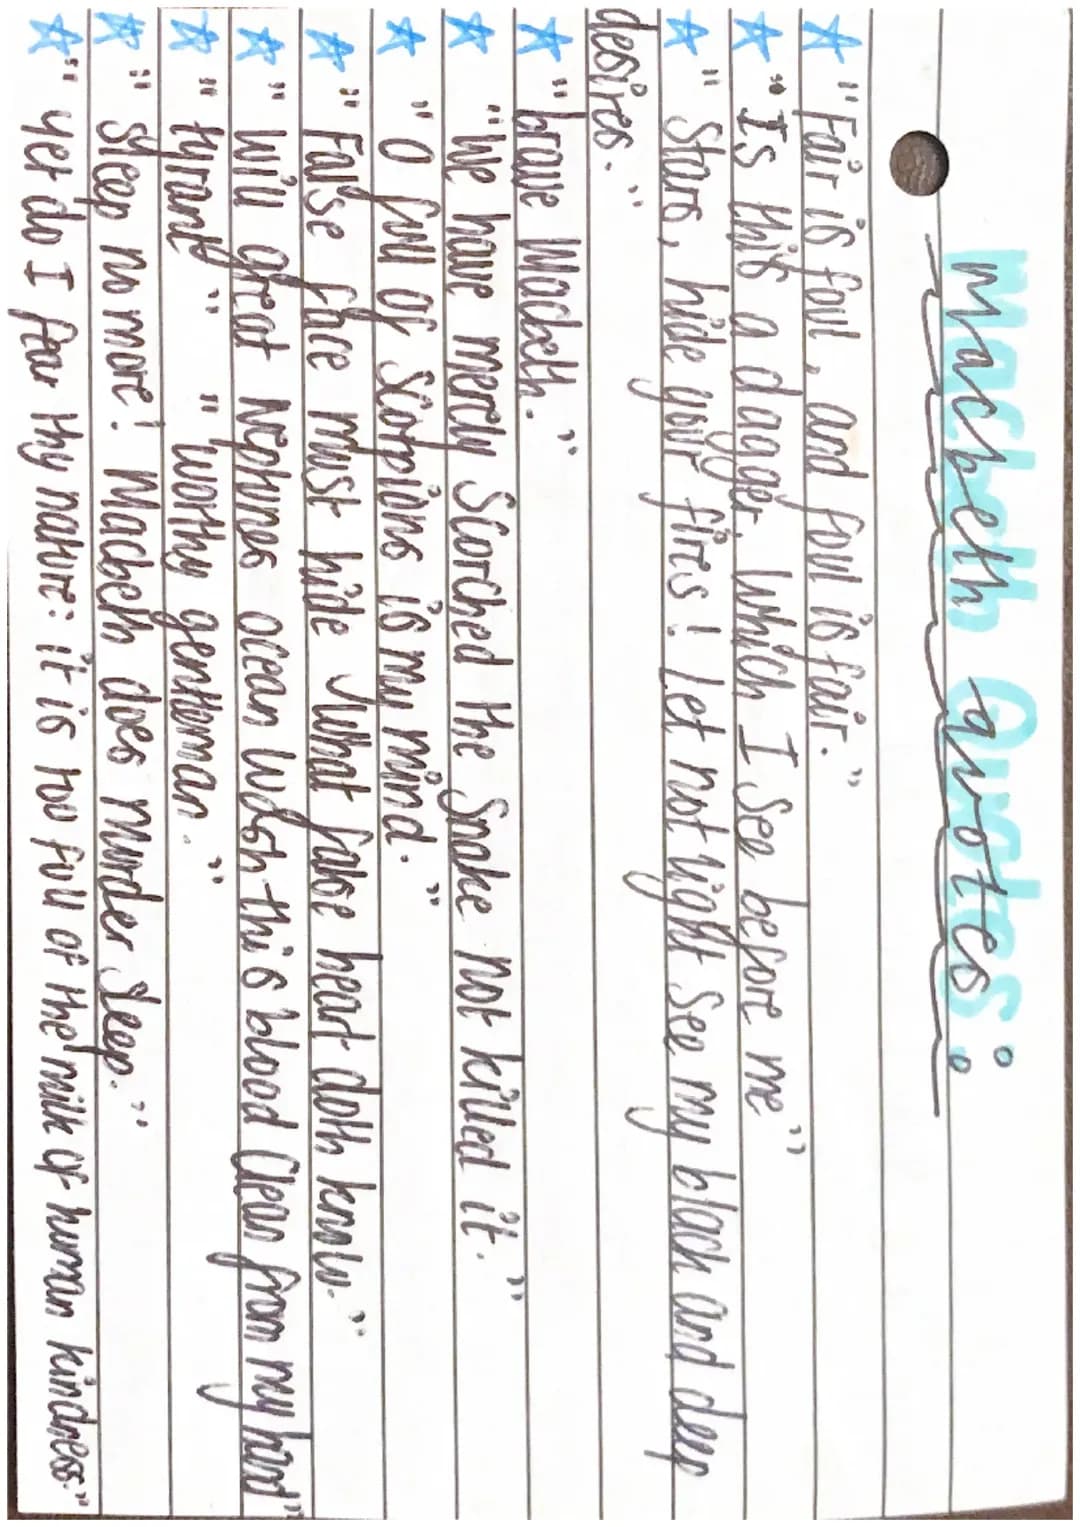 Macbeth Quotes:
"Fair is foul, and foul is fair."
"Is this a dagger, which I see before me"
"Stars, hide your fires! Let not light see my black and deep
desires."
"brave Macbeth."
"We have merely Scorched the Snake not killed it."
"O full of Scorpions is my mind."
"False face must hide what false heart doth know."
"Will great Neptunes ocean wash this blood Clean from my hand"
"tyrant" "worthy gentleman."
"Sleep no more! Macbeth does murder Sleep."
"yet do I fear thy nature: it is too full of the milk of human kindness."